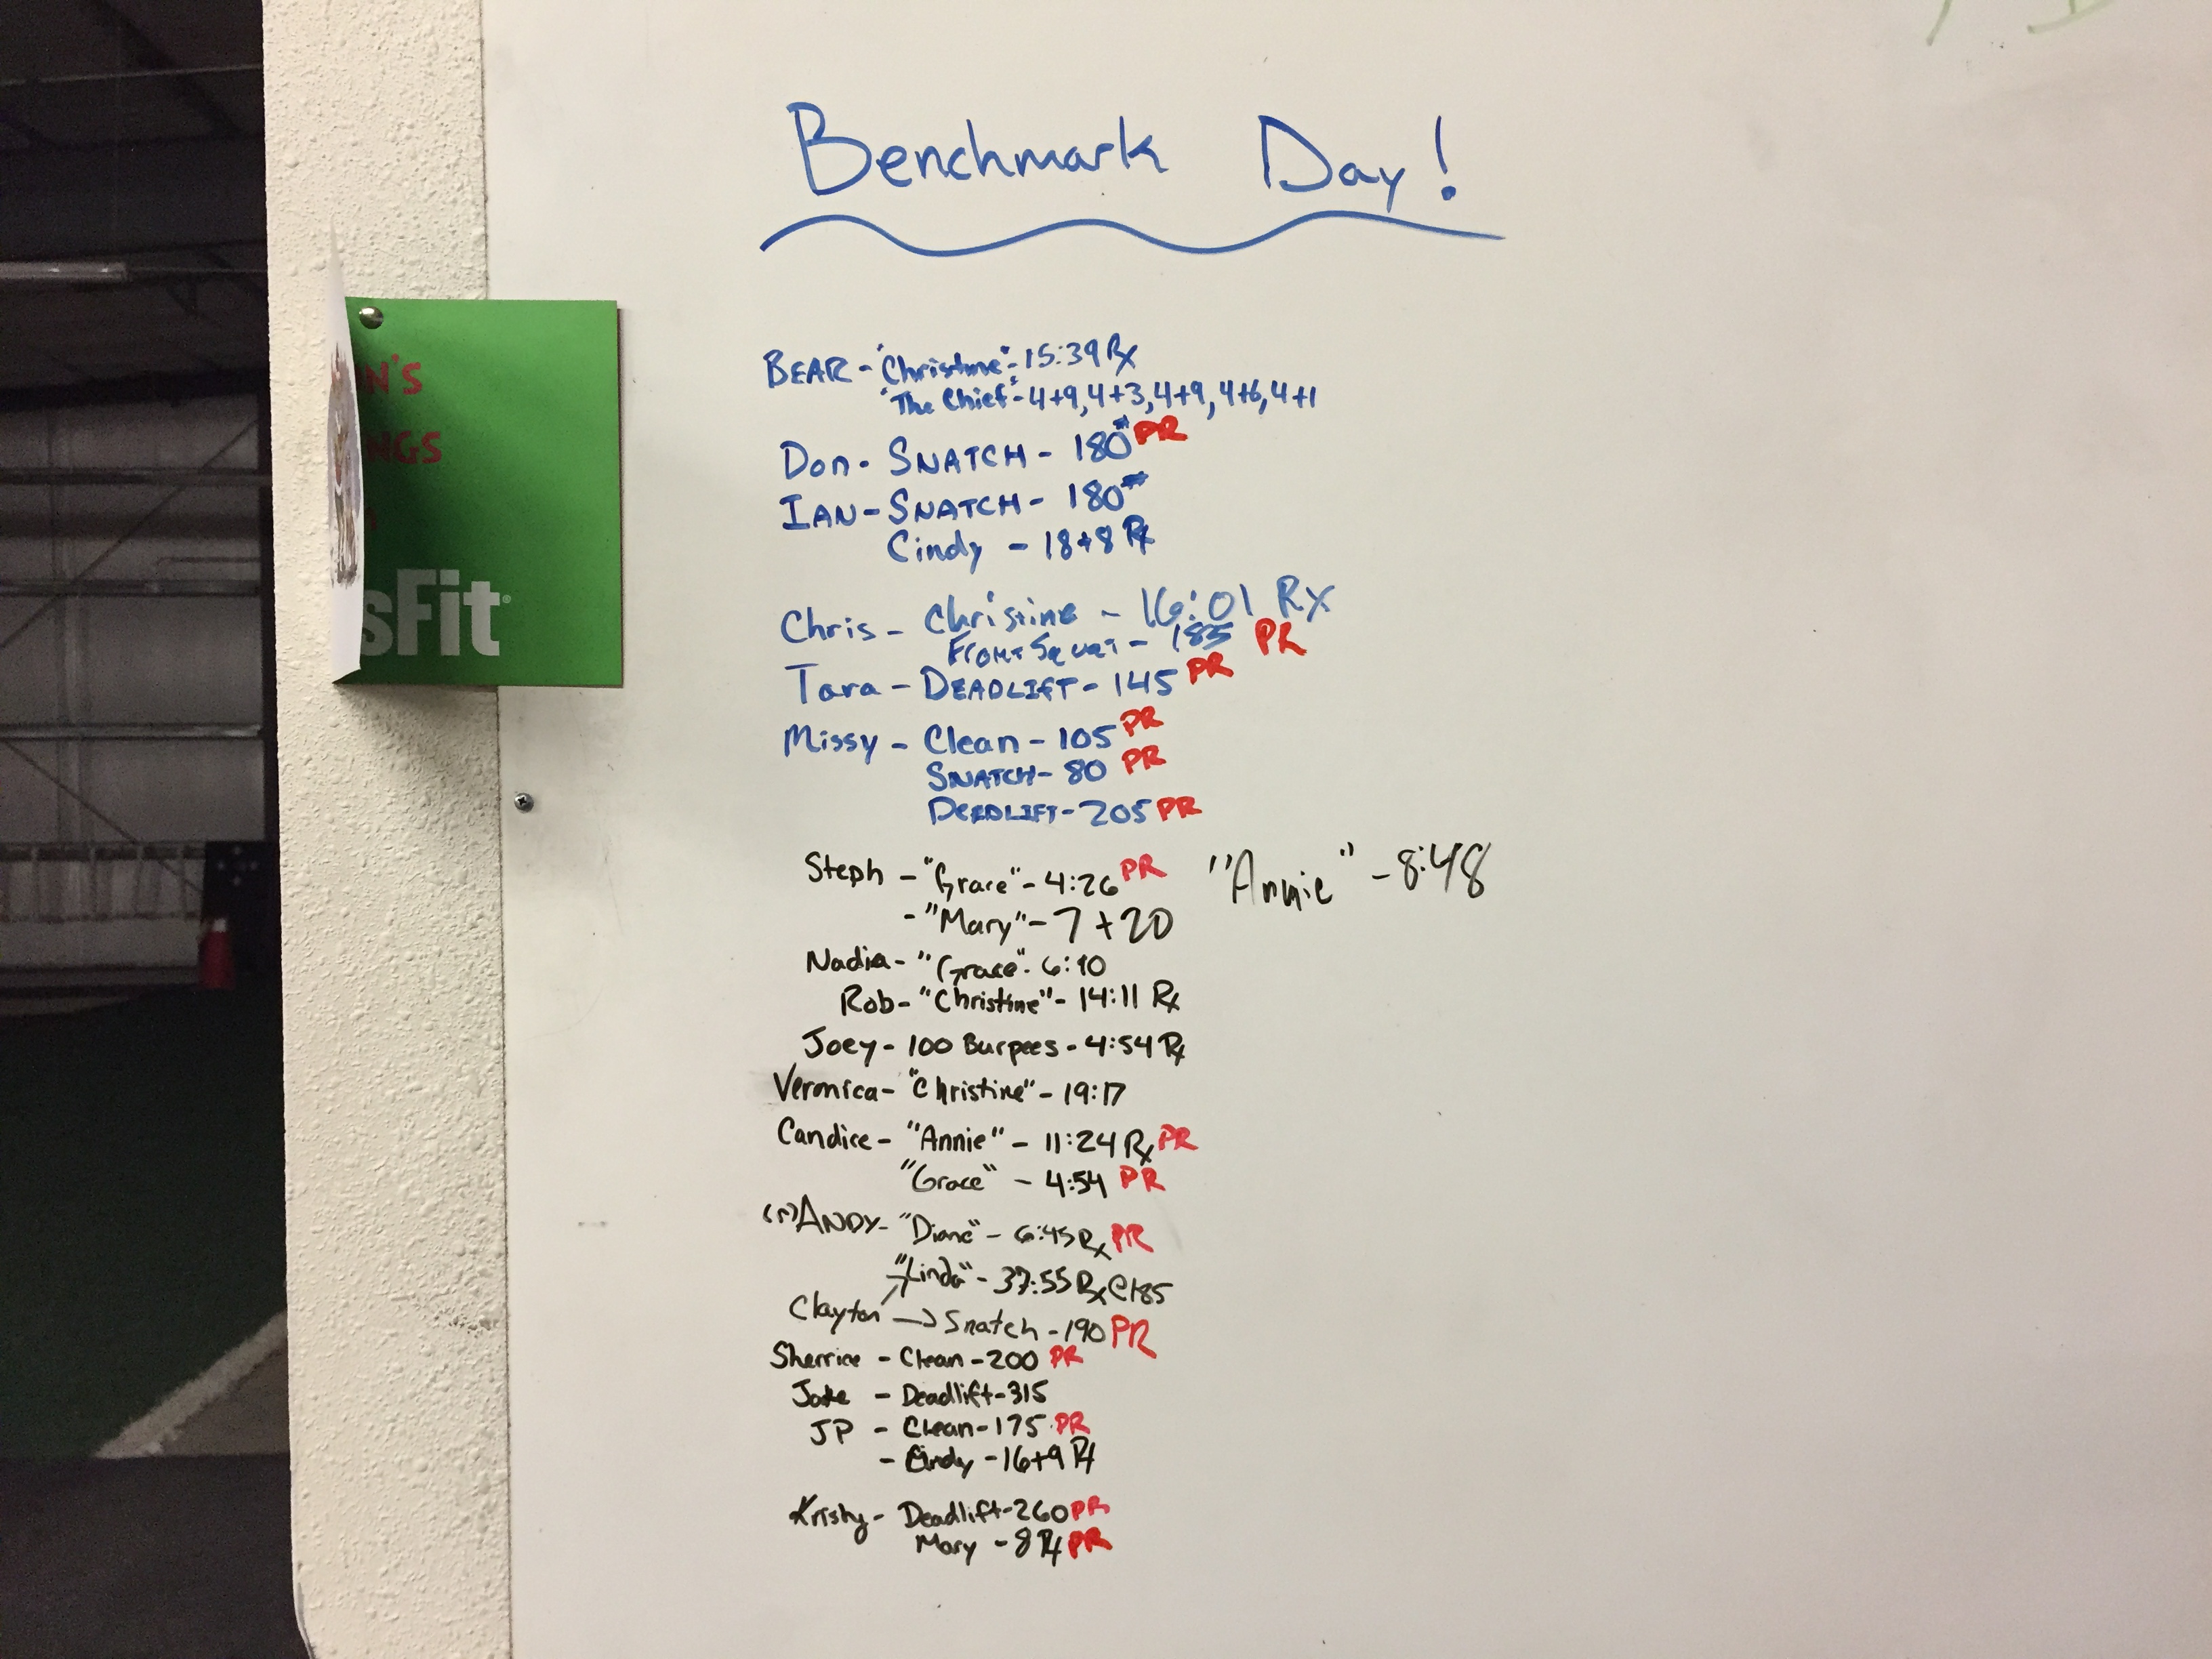 Benchmark Day!
N'S
NGS
sFit
BEAR - "Christine" - 15:39 Rx
"The Chief" - 4+9, 4+3, 4+9, 4+6, 4+1
Don - SNATCH - 180# PR
IAN - SNATCH - 180#
Cindy - 18+8 Rx
Chris - Christine - 16:01 Rx
Front Squat - 185 PR
Tara - DEADLIFT - 145 PR
Missy - Clean - 105 PR
SNATCH - 80 PR
DEADLIFT - 205 PR
Steph - "Grace" - 4:26 PR "Annie" - 8:48
- "Mary" - 7+20
Nadia - "Grace" - 6:10
Rob - "Christine" - 14:11 Rx
Joey - 100 Burpees - 4:54 Rx
Veronica - "Christine" - 19:17
Candice - "Annie" - 11:24 Rx PR
"Grace" - 4:54 PR
ANDY - "Diane" - 6:45 Rx PR
"Linda" - 37:55 Rx @185
Clayton → Snatch - 190 PR
Sherrice - Clean - 200 PR
Jake - Deadlift - 315
JP - Clean - 175 PR
- Cindy - 16+9 Rx
Kristy - Deadlift - 260 PR
Mary - 8 Rx PR